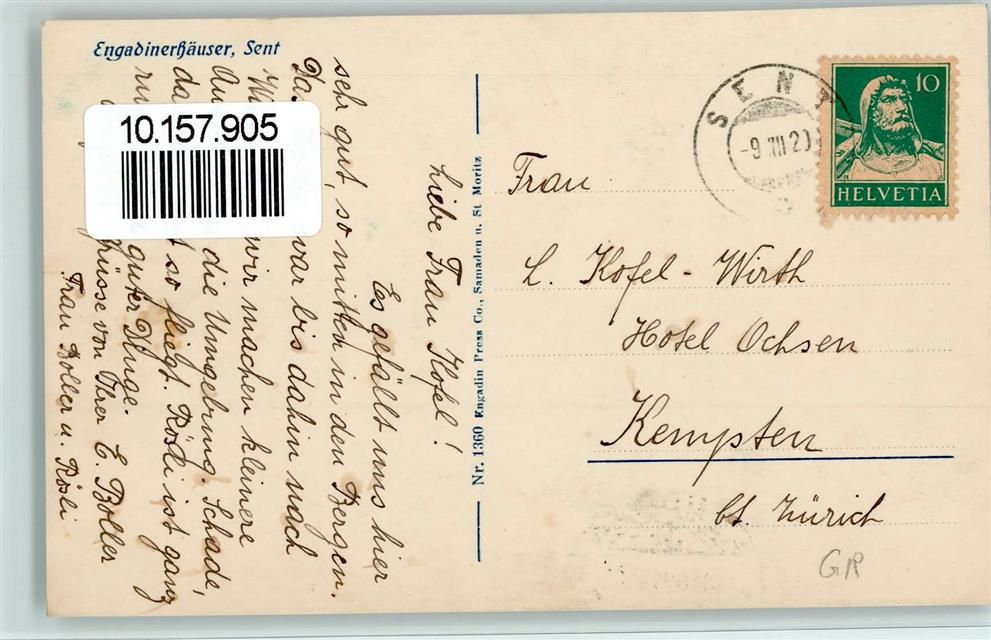 Engadinerhäuser, Sent
10.157.905
SENT
-9.VIII.20
10
HELVETIA
Nr. 1360 Engadin Press Co., Samaden u. St. Moritz
Frau
L. Kofel - Wirth
Hotel Ochsen
Kempten
bt. Zürich
GR
Liebe Frau Kofel!
Es gefällt uns hier
sehr gut, so mitten in den Bergen.
war bis dahin noch
wir machen kleinere
die Umgebung. Schade,
so fliegt. Rösli ist ganz
guter Dinge.
grüsse von Ihrer E. Boller
Frau Boller u. Rösli